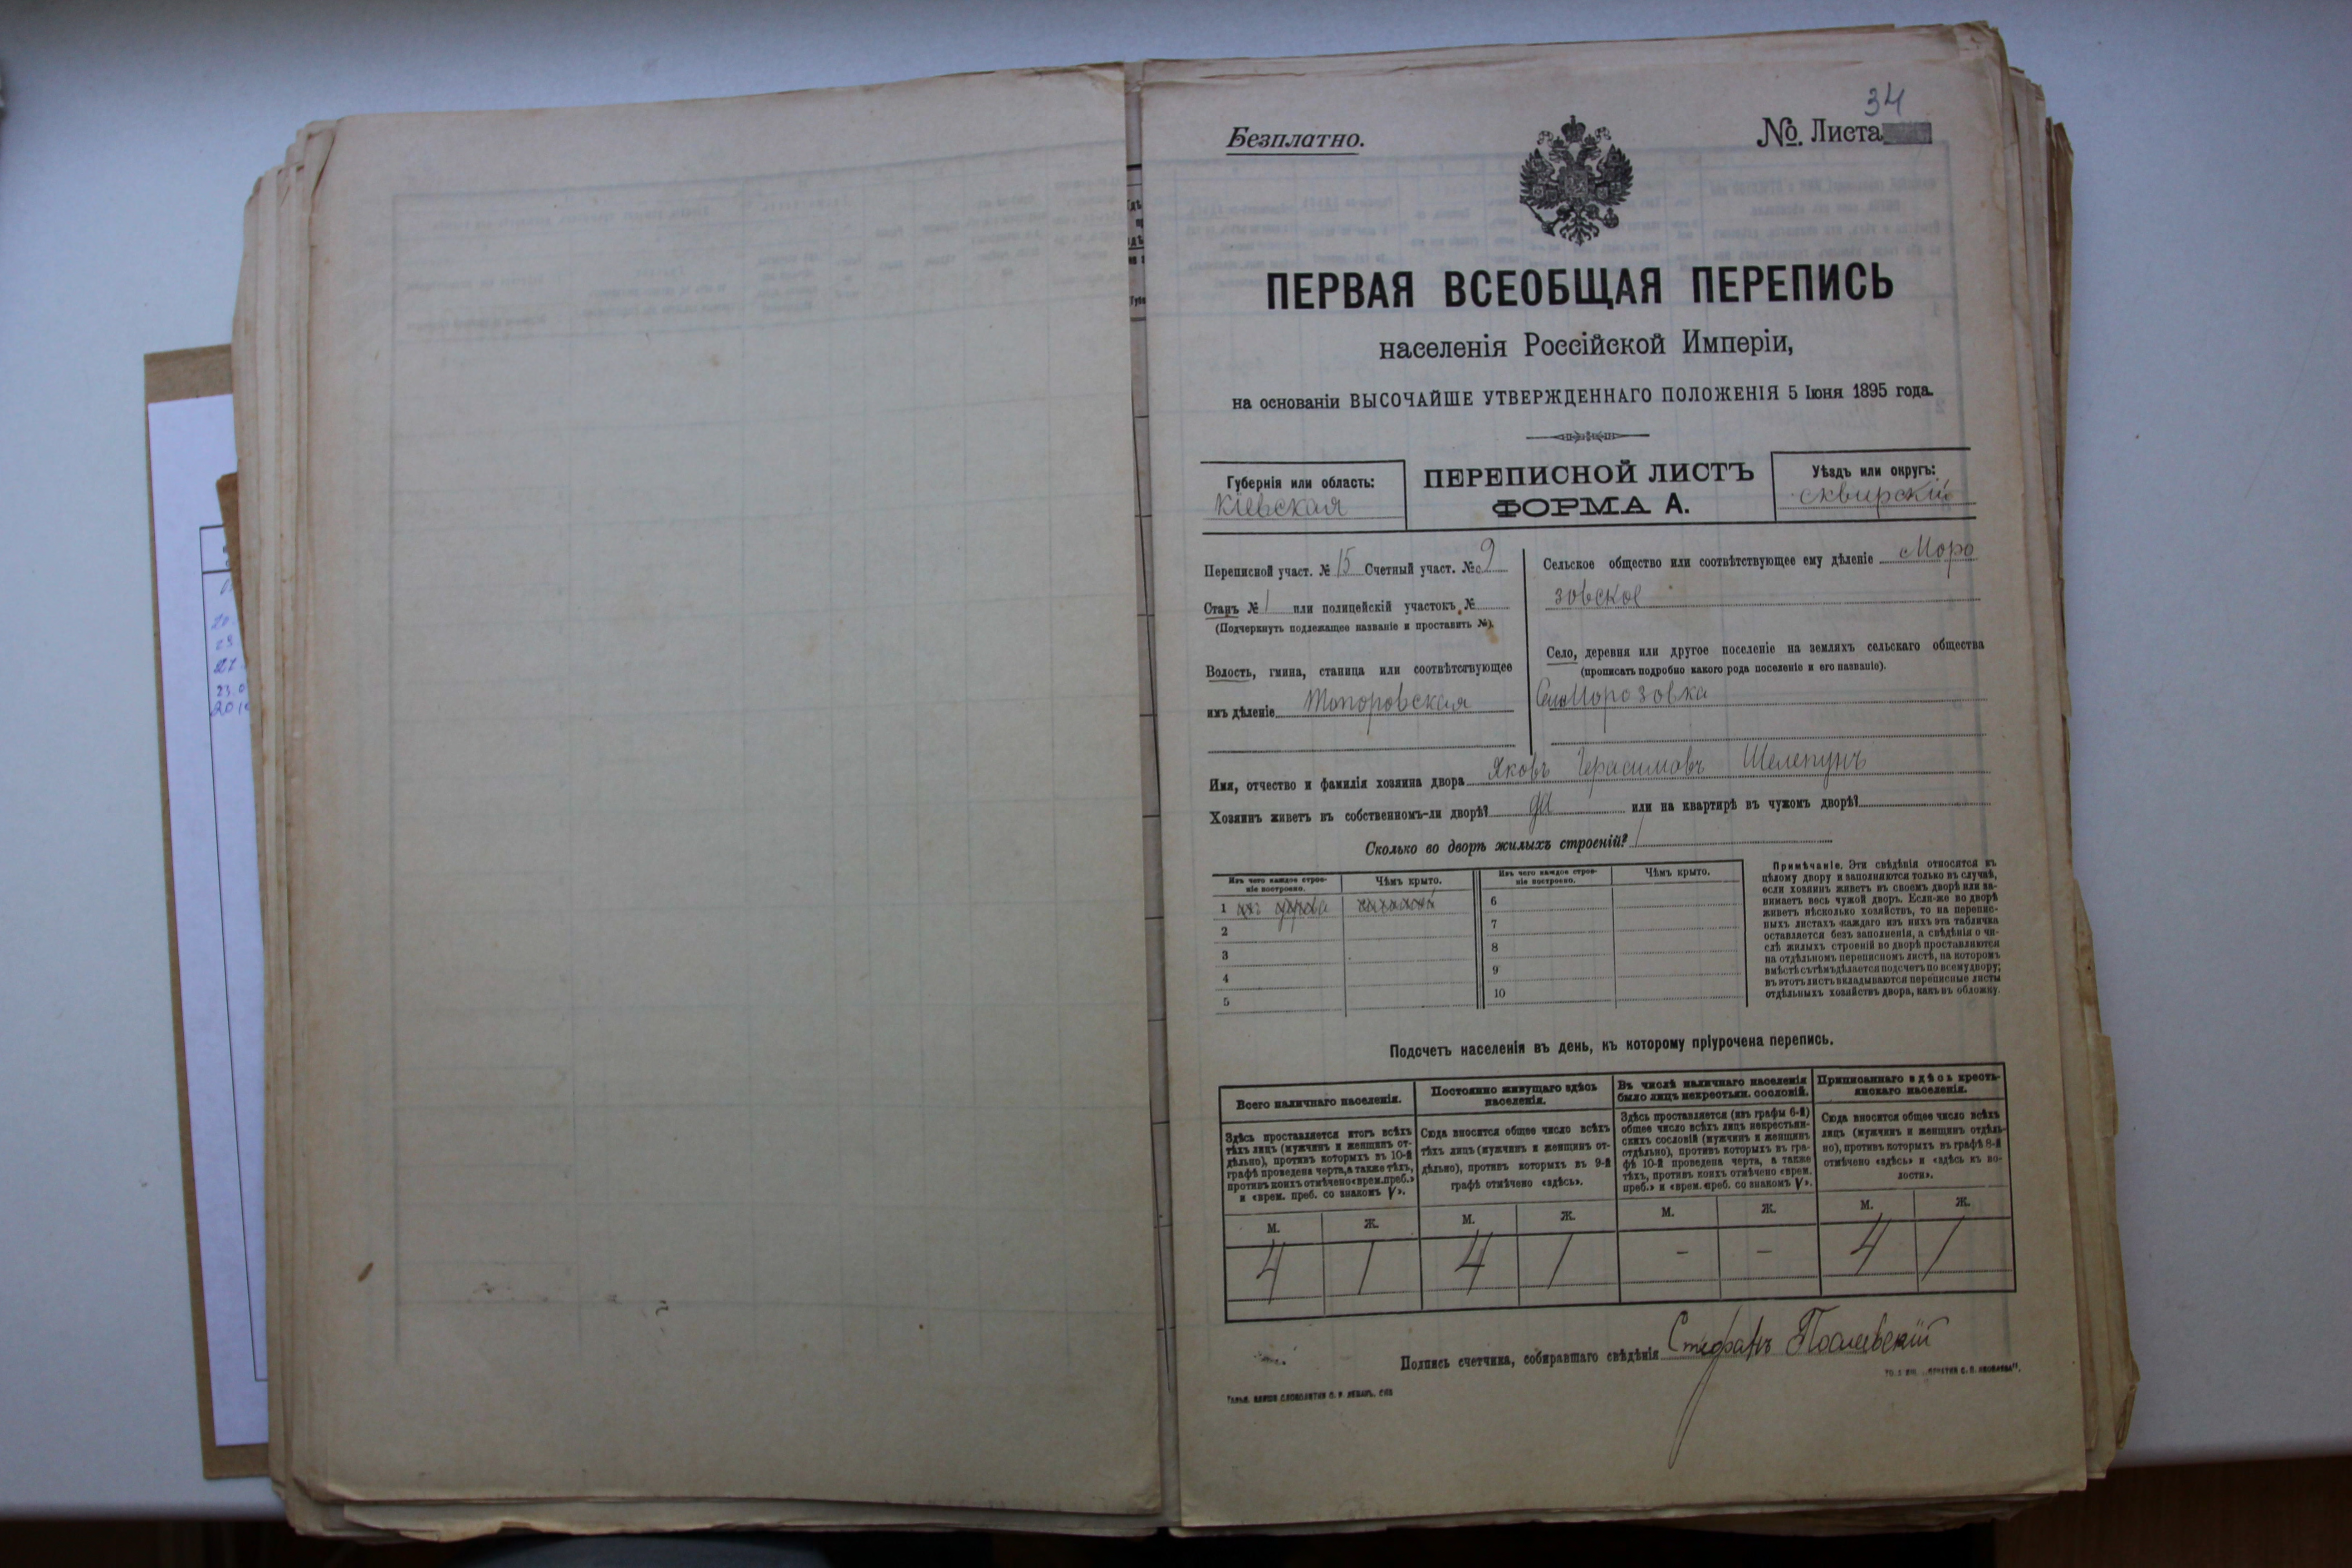 34
Безплатно.
№. Листа
ПЕРВАЯ ВСЕОБЩАЯ ПЕРЕПИСЬ
населенія Россійской Имперіи,
на основаніи ВЫСОЧАЙШЕ УТВЕРЖДЕННАГО ПОЛОЖЕНІЯ 5 Іюня 1895 года.
Губернія или область:
Кіевская
ПЕРЕПИСНОЙ ЛИСТЪ
ФОРМА А.
Уѣздъ или округъ:
сквирскій
Переписной участ. № 15 Счетный участ. № 9
Станъ № 1 или полицейскій участокъ №
(Подчеркнуть подлежащее названіе и проставить №).
Волость, гмина, станица или соотвѣтствующее
имъ дѣленіе Топоровская
Сельское общество или соотвѣтствующее ему дѣленіе Моро
зовское
Село, деревня или другое поселеніе на земляхъ сельскаго общества
(прописать подробно какого рода поселеніе и его названіе).
Село Морозовка
Имя, отчество и фамилія хозяина двора Яковъ Герасимовъ Шелепунъ
Хозяинъ живетъ въ собственномъ-ли дворѣ? да или на квартирѣ въ чужомъ дворѣ?
Сколько во дворѣ жилыхъ строеній? 1
Изъ чего каждое строе-
ніе построено.
Чѣмъ крыто.
Изъ чего каждое строе-
ніе построено.
Чѣмъ крыто.
1 изъ дерева
6
2
7
3
8
4
9
5
10
Примѣчаніе. Эти свѣдѣнія относятся къ
цѣлому двору и заполняются только въ случаѣ,
если хозяинъ живетъ въ своемъ дворѣ или за-
нимаетъ весь чужой дворъ. Если-же во дворѣ
живетъ нѣсколько хозяйствъ, то на перепис-
ныхъ листахъ каждаго изъ нихъ эта табличка
оставляется безъ заполненія, а свѣдѣнія о чи-
слѣ жилыхъ строеній во дворѣ проставляются
на отдѣльномъ переписномъ листѣ, на которомъ
вмѣстѣ съ тѣмъ дѣлается подсчетъ по всему двору;
въ этотъ листъ вкладываются переписные листы
отдѣльныхъ хозяйствъ двора, какъ въ обложку.
Подсчетъ населенія въ день, къ которому пріурочена перепись.
Всего наличнаго населенія.
Здѣсь проставляется итогъ всѣхъ
тѣхъ лицъ (мужчинъ и женщинъ от-
дѣльно), противъ которыхъ въ 10-й
графѣ проведена черта, а также тѣхъ,
противъ коихъ отмѣчено «врем. преб.»
и «врем. преб. со знакомъ V».
Постоянно живущаго здѣсь
населенія.
Сюда вносится общее число всѣхъ
тѣхъ лицъ (мужчинъ и женщинъ от-
дѣльно), противъ которыхъ въ 9-й
графѣ отмѣчено «здѣсь».
Въ числѣ наличнаго населенія
было лицъ некрестьян. сословій.
Здѣсь проставляется (изъ графы 6-й)
общее число всѣхъ лицъ некрестьян-
скихъ сословій (мужчинъ и женщинъ
отдѣльно), противъ которыхъ въ гра-
фѣ 10-й проведена черта, а также
тѣхъ, противъ коихъ отмѣчено «врем.
преб.» и «врем. преб. со знакомъ V».
Приписаннаго здѣсь кресть-
янскаго населенія.
Сюда вносится общее число всѣхъ
лицъ (мужчинъ и женщинъ отдѣль-
но), противъ которыхъ въ графѣ 8-й
отмѣчено «здѣсь» и «здѣсь къ во-
лости».
М. Ж. М. Ж. М. Ж. М. Ж.
4 1 4 1 - - 4 1
Подпись счетчика, собиравшаго свѣдѣнія Стефанъ